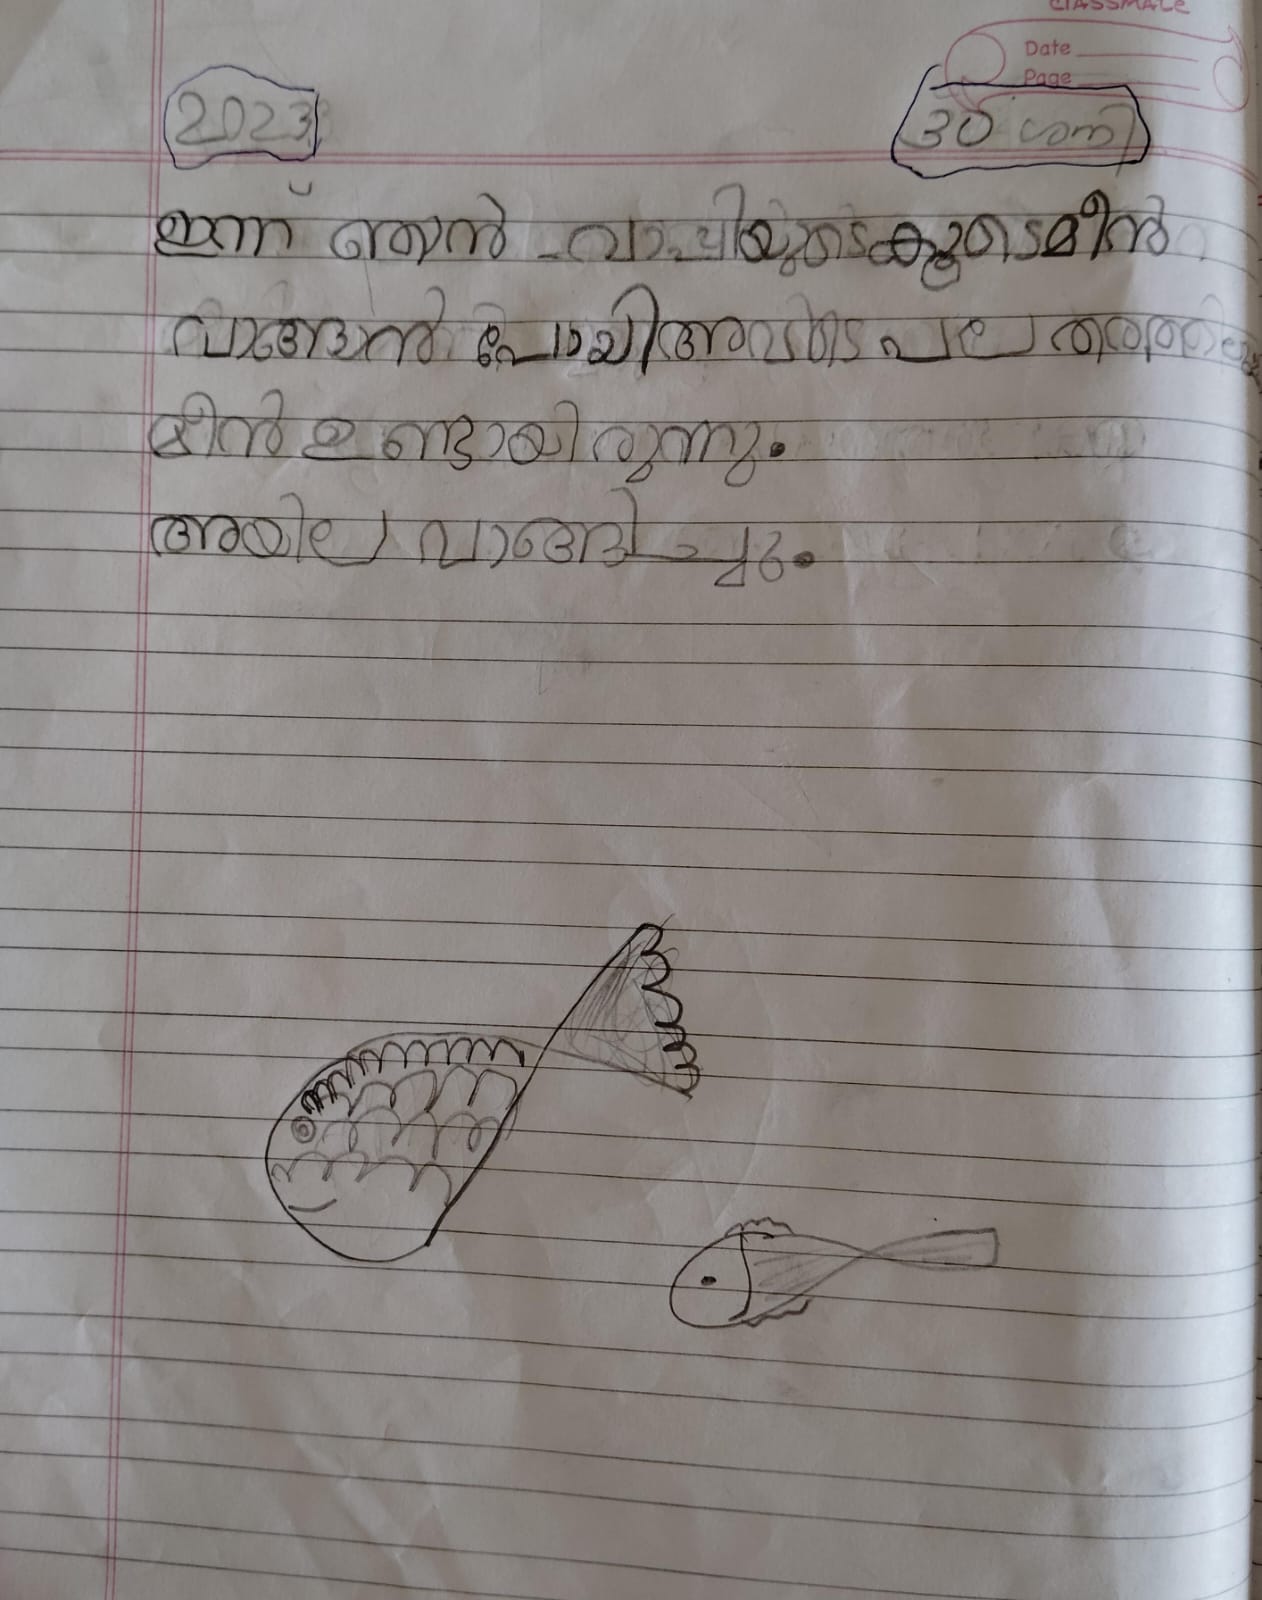 classmate
Date
Page
2023 30 ശനി
ഇന്ന് ഞാൻ വാപ്പിയുടെ കൂടെ മീൻ
വാങ്ങാൻ പോയി അവിടെ പല തരത്തിലു
മീൻ ഉണ്ടായിരുന്നു.
അയില വാങ്ങിച്ചു.